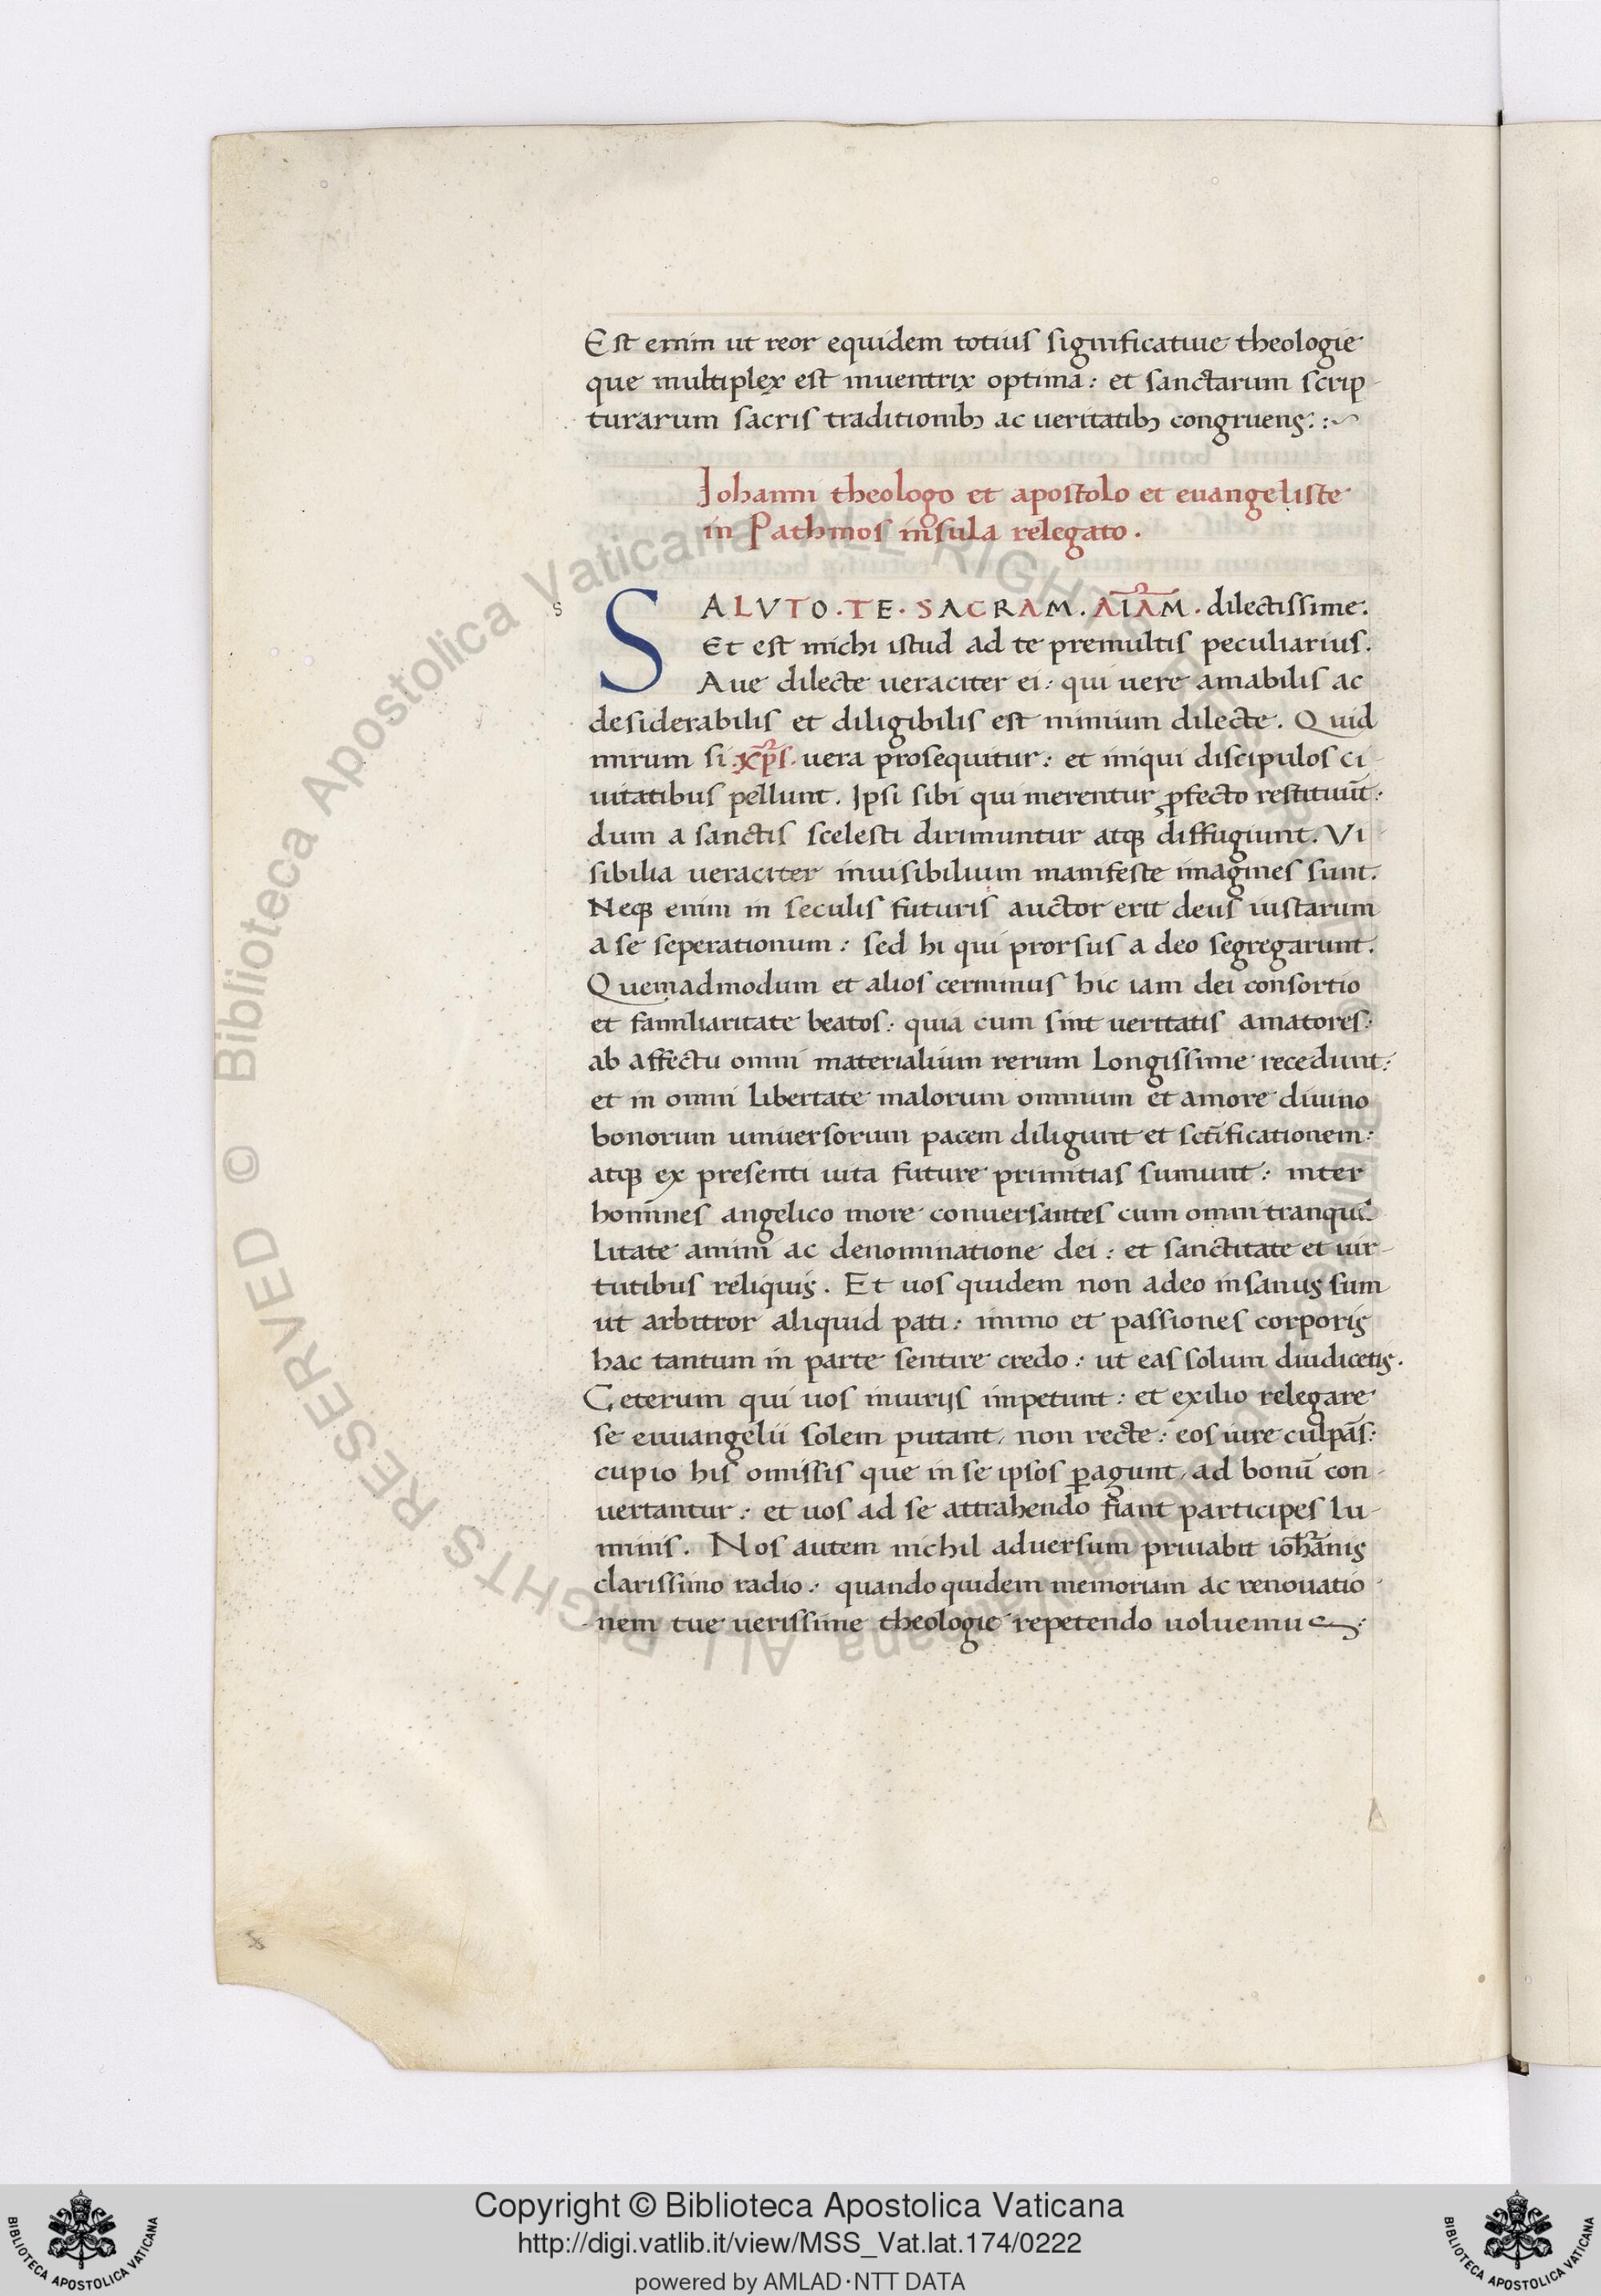 Est enim ut reor equidem totius significatiue theologie
que multiplex est inuentrix optima: et sanctarum scrip-
turarum sacris traditionibꝫ ac ueritatibꝫ congruens:
Iohanni theologo et apostolo et euangeliste
in Pathmos insula relegato.
s
SALVTO·TE·SACRAM·AĪAM· dilectissime.
Et est michi istud ad te premultis peculiarius.
Aue dilecte ueraciter ei: qui uere amabilis ac
desiderabilis et diligibilis est nimium dilecte. Quid
mirum si ·xp̄s· uera prosequitur: et iniqui discipulos ci-
uitatibus pellunt. Ipsi sibi qui merentur ꝓfecto restituūt:
dum a sanctis scelesti dirimuntur atqꝫ diffugiunt. Vi-
sibilia ueraciter inuisibilium manifeste imagines sunt.
Neqꝫ enim in seculis futuris auctor erit deus iustarum
a se seperationum: sed hi qui prorsus a deo segregarunt.
Quemadmodum et alios cernimus hic iam dei consortio
et familiaritate beatos: quia cum sint ueritatis amatores:
ab affectu omni materialium rerum longissime recedunt:
et in omni libertate malorum omnium et amore diuino
bonorum uniuersorum pacem diligunt et sct̄ificationem:
atqꝫ ex presenti uita future primitias sumunt: inter
homines angelico more conuersantes cum omni tranqui-
litate animi ac denominatione dei: et sanctitate et uir-
tutibus reliquis. Et uos quidem non adeo insanus sum
ut arbitror aliquid pati: immo et passiones corporis
hac tantum in parte sentire credo: ut eas solum diiudicetis.
Ceterum qui uos iniurijs impetunt: et exilio relegare
se euuangelii solem putant, non recte: eos iure culpās:
cupio his omissis que in se ipsos ꝑagunt, ad bonū con-
uertantur: et uos ad se attrahendo fiant participes lu-
minis. Nos autem nichil aduersum priuabit ioh̄anis
clarissimo radio: quandoquidem memoriam ac renouatio-
nem tue uerissime theologie repetendo uoluemus:
Copyright © Biblioteca Apostolica Vaticana
http://digi.vatlib.it/view/MSS_Vat.lat.174/0222
powered by AMLAD·NTT DATA
© Biblioteca Apostolica Vaticana ALL RIGHTS RESERVED
BIBLIOTECA APOSTOLICA VATICANA
BIBLIOTECA APOSTOLICA VATICANA